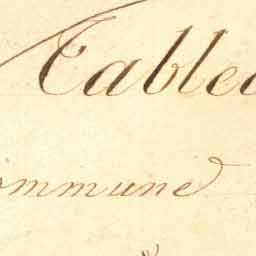 Tablea
ommune